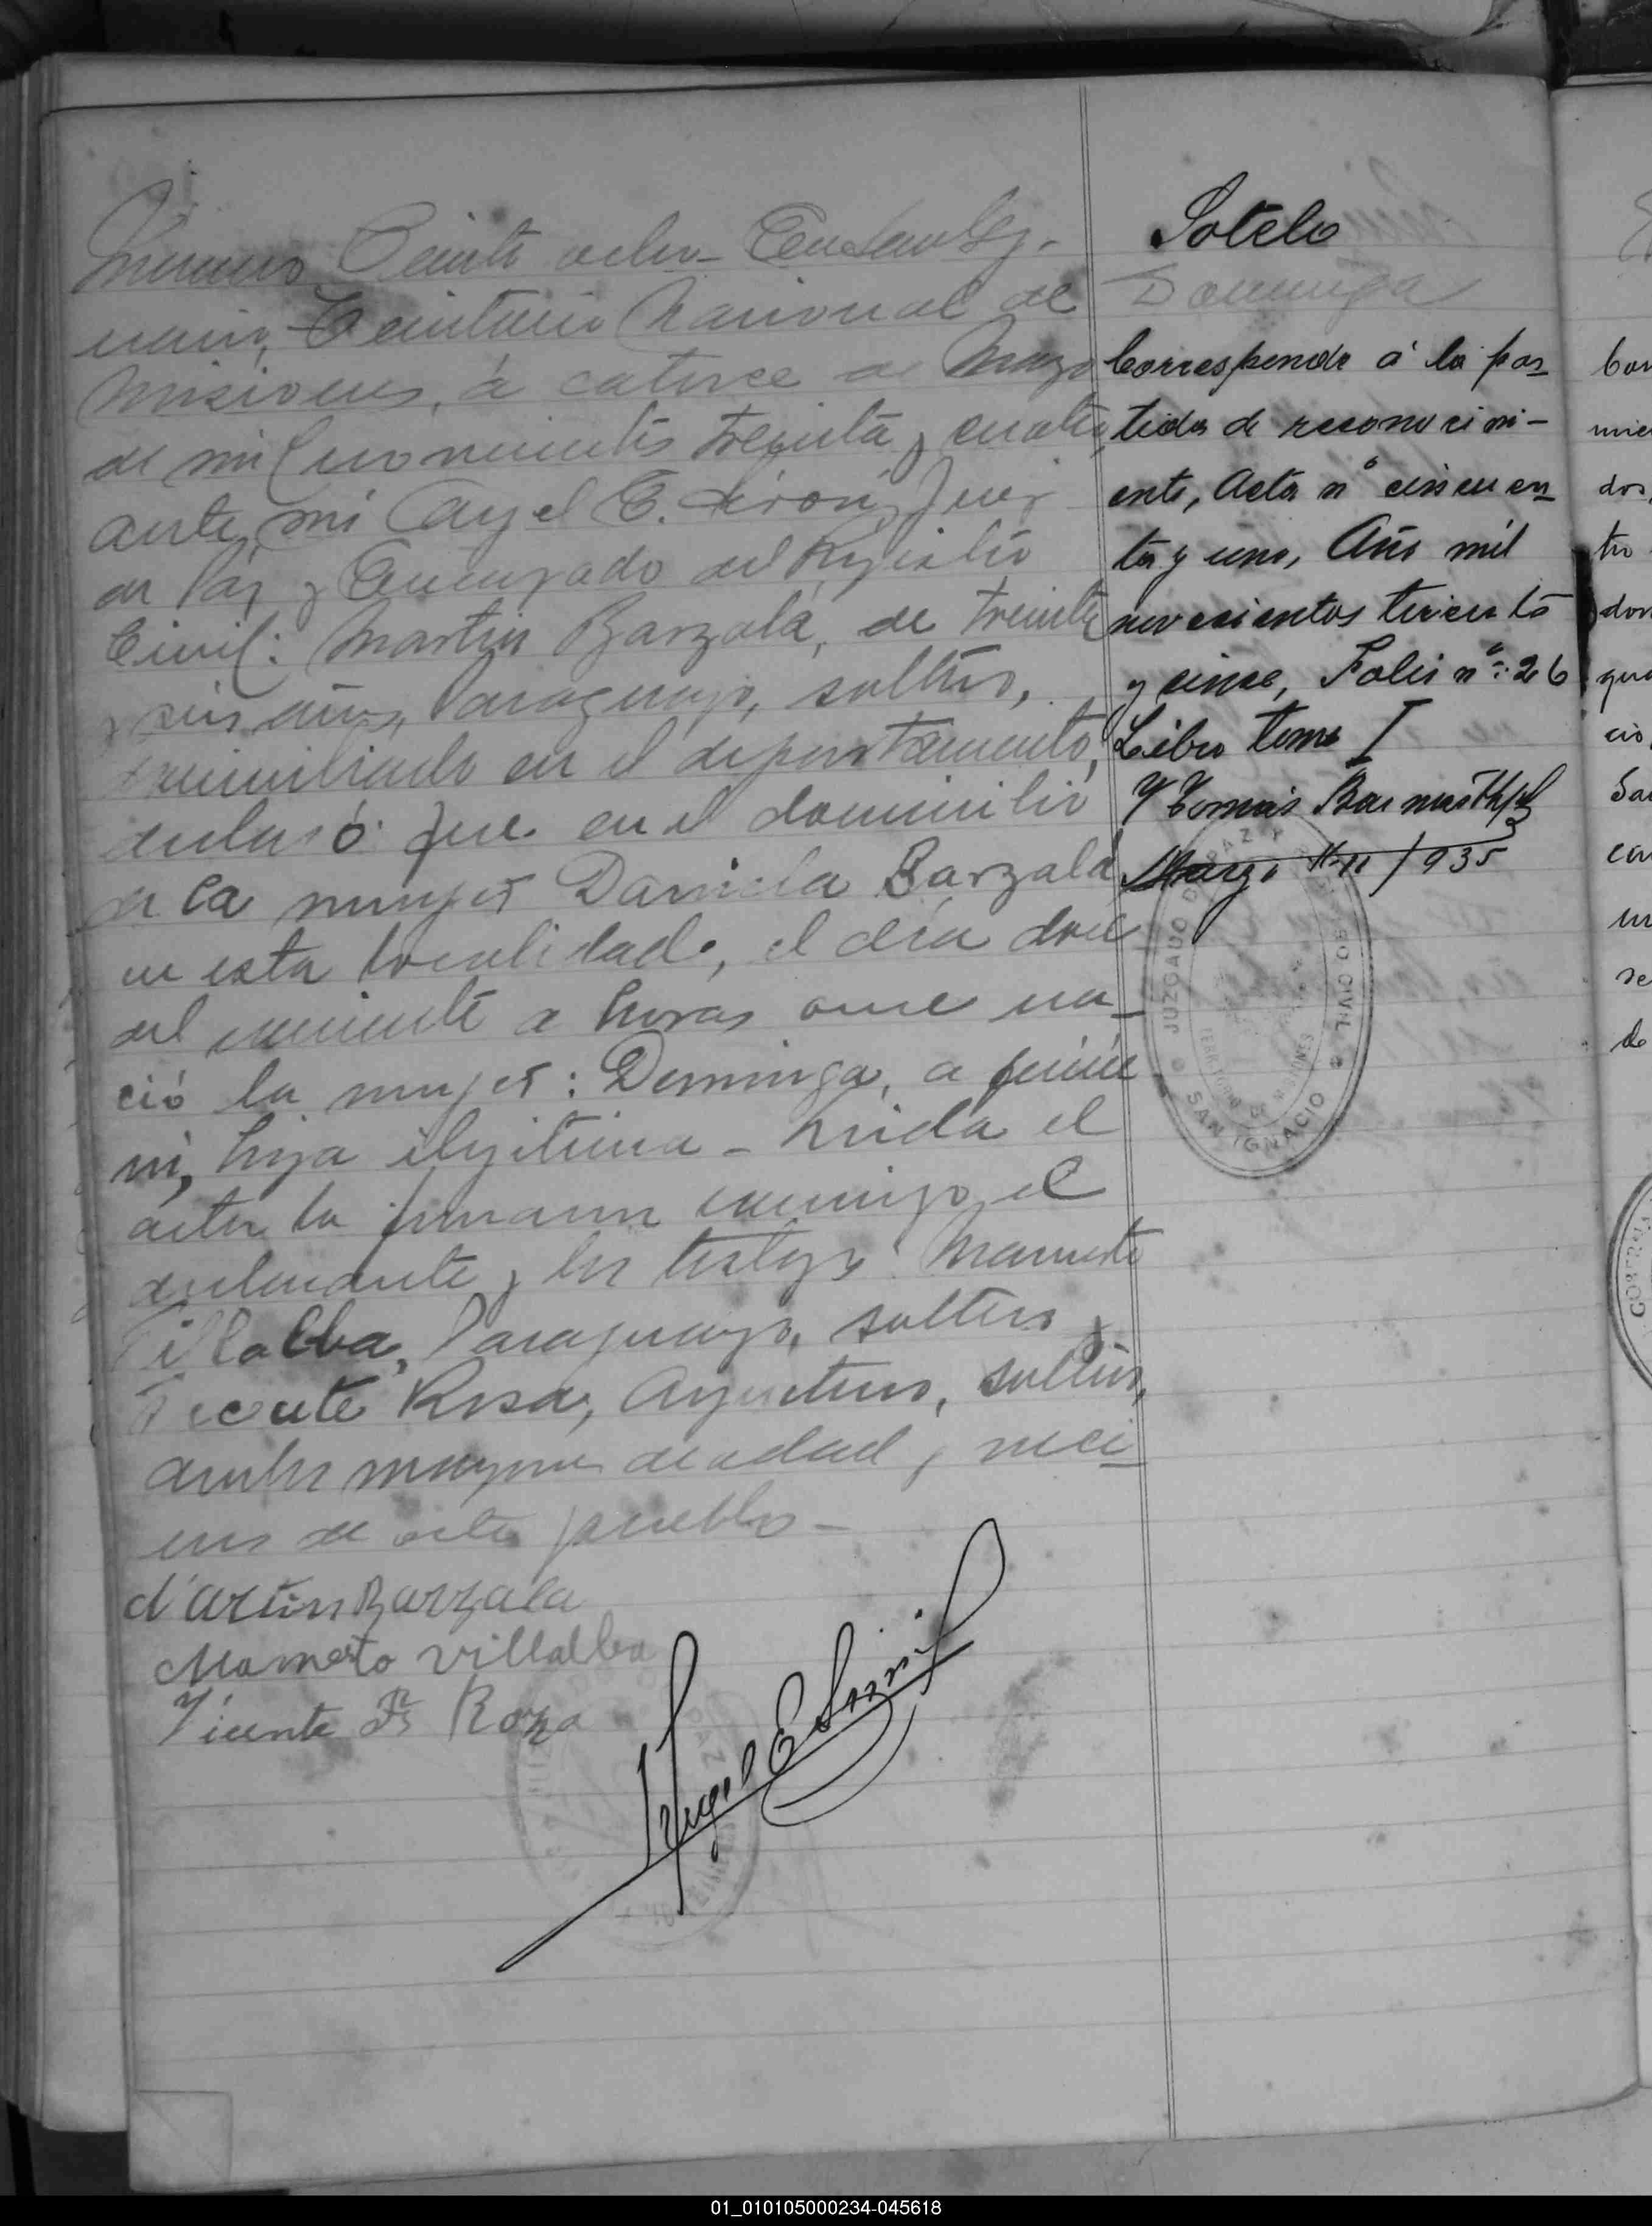 Numero Veinte ocho - En San Ig-
nacio, Territorio Nacional de
Misiones, á catorce de Marzo
de mil novecientos treinta y cuatro,
ante mi Angel E. Juez
de Paz y Encargado del Rejistro
Civil: Martin Barzala, de treinta
y seis años, Paraguayo, soltero,
domiciliado en el departamento,
declaró: Que en el domicilio
de la mujer Daniela Barzala
en esta localidad, el día doce
del corriente a horas once na-
ció la mujer: Dominga, a quien
vi, hija ilejitima - Leida el
acta la firmaron conmigo, el
declarante y los testigos: Mamerto
Villalba, Paraguayo, soltero y
Vicente Rosa, Arjentino, soltero,
ambos mayores de edad y veci-
nos de este pueblo -
Martin Barzala
Mamerto Villalba
Vicente Roza
Angel E
Sotelo
Dominga
Corresponde á la par-
tida de reconocimi-
ento, Acta nº cincuen-
ta y uno, Año mil
novecientos treinta
y cinco, Folio nº: 26
Libro tomo I
Marzo 11/1935
JUZGADO DE PAZ Y REGISTRO CIVIL
TERRITORIO DE MISIONES
SAN IGNACIO
01_010105000234-045618